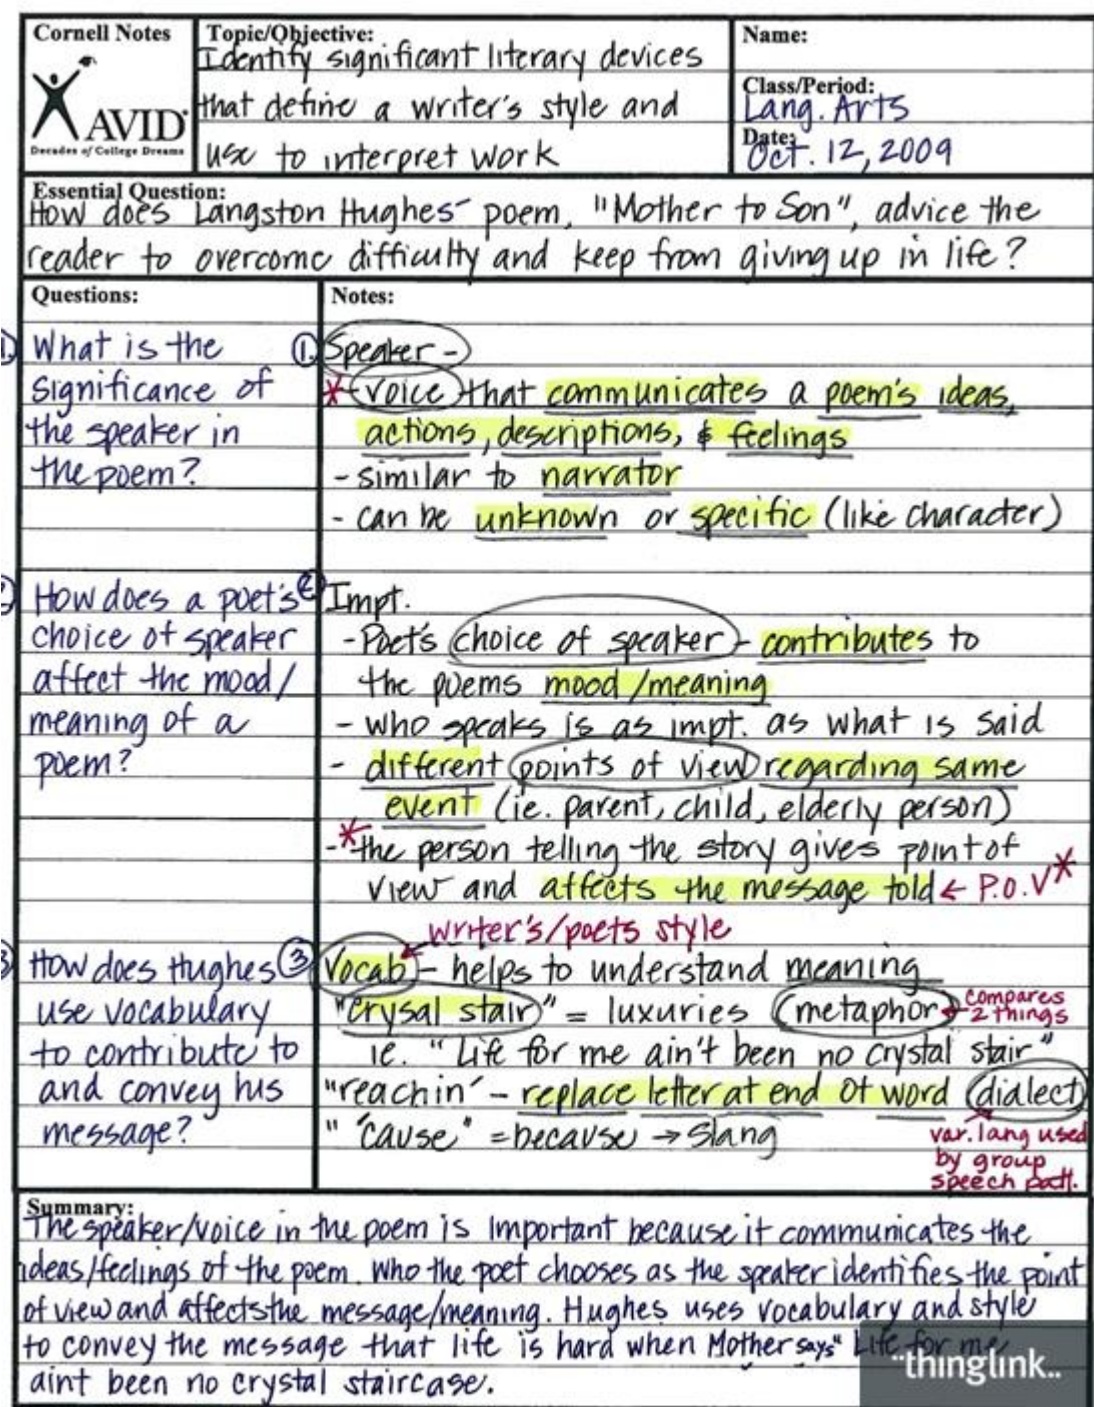 Cornell Notes
AVID
Decades of College Dreams
Topic/Objective:
Identify significant literary devices
that define a writer's style and
use to interpret work
Name:
Class/Period:
Lang. Arts
Date:
Oct. 12, 2009
Essential Question:
How does Langston Hughes' poem, "Mother to Son", advice the
reader to overcome difficulty and keep from giving up in life?
Questions:
1. What is the
significance of
the speaker in
the poem?
How does a poet's
choice of speaker
affect the mood/
meaning of a
poem?
3 How does Hughes
use vocabulary
to contribute to
and convey his
message?
Notes:
1. Speaker -
* - voice that communicates a poem's ideas,
actions, descriptions, & feelings
- similar to narrator
- can be unknown or specific (like character)
2 Impt.
- Poet's choice of speaker - contributes to
the poems mood/meaning
- who speaks is as impt. as what is said
- different points of view regarding same
event (ie. parent, child, elderly person)
- * the person telling the story gives point of
view and affects the message told ← P.O.V *
writer's/poets style
3 Vocab - helps to understand meaning
"crysal stair" = luxuries (metaphor) ← compares
2 things
ie. "Life for me ain't been no crystal stair"
"reachin' - replace letter at end of word (dialect)
" 'cause" = because → slang
var. lang used
by group
speech patt.
Summary:
The speaker/voice in the poem is important because it communicates the
ideas/feelings of the poem. Who the poet chooses as the speaker identifies the point
of view and affects the message/meaning. Hughes uses vocabulary and style
to convey the message that life is hard when Mother says "Life for me
aint been no crystal staircase.
"thinglink..